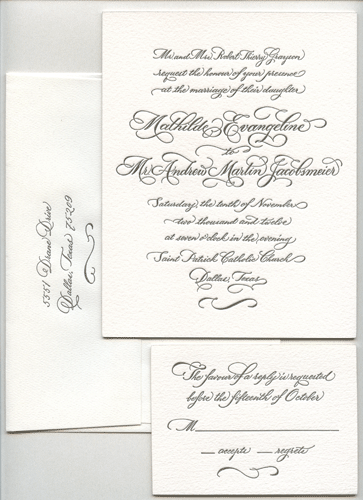 Mr. and Mrs. Robert Thierry Grayson
request the honour of your presence
at the marriage of their daughter
Mathilde Evangeline
to
Mr. Andrew Martin Jacobsmeier
Saturday, the tenth of November
two thousand and twelve
at seven o'clock in the evening
Saint Patrick Catholic Church
Dallas, Texas
5551 Drane Drive
Dallas, Texas 75209
The favour of a reply is requested
before the fifteenth of October
M
accepts regrets